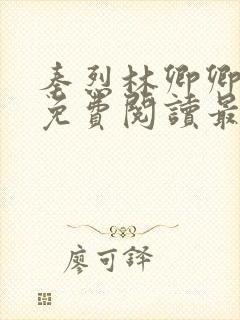 秦烈林卿卿
免費閱讀最
廖可鐸